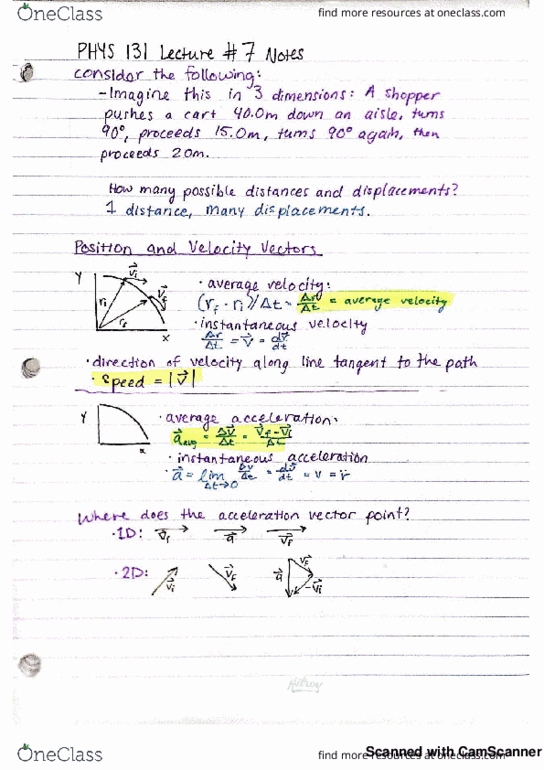 OneClass find more resources at oneclass.com
PHYS 131 Lecture #7 Notes
consider the following:
-Imagine this in 3 dimensions: A shopper
pushes a cart 40.0m down an aisle, turns
90°, proceeds 15.0m, turns 90° again, then
proceeds 20m.
How many possible distances and displacements?
1 distance, many displacements.
Position and Velocity Vectors
Y v⃗i
· average velocity:
ri v⃗f
(rf - ri)/Δt = Δr/Δt = average velocity
rf
· instantaneous velocity
x
Δr/Δt = v⃗ = dv⃗/dt
· direction of velocity along line tangent to the path
· Speed = |v⃗|
Y
· average acceleration:
a⃗avg = Δv⃗/Δt = v⃗f-v⃗i/Δt
x
· instantaneous acceleration
· a⃗ = lim Δt→0 Δv/Δt = dv⃗/dt = v = r̈
Where does the acceleration vector point?
· 1D: a⃗ v⃗f
· 2D: v⃗i v⃗f a⃗ v⃗f -v⃗i
OneClass find more resources at oneclass.com
Scanned with CamScanner